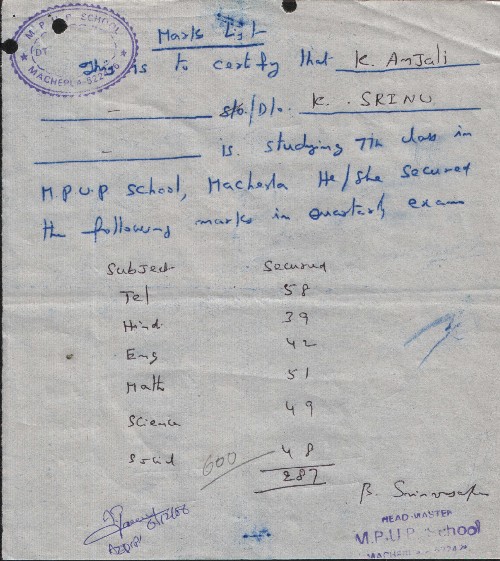 M.P.U.P. SCHOOL
DT.
MACHERLA-522426
Mark List
This is to certify that K. Anjali
— S/o./D/o. K. SRINU
— is studying 7th class in
M.P.U.P School, Macherla He/She Secured
the following marks in quartarly exam
Subject Secured
Tel 58
Hind 39
Eng 42
Math 51
Science 49
Social 48
600 287
B.
HEAD-MASTER
M.P.U.P. School